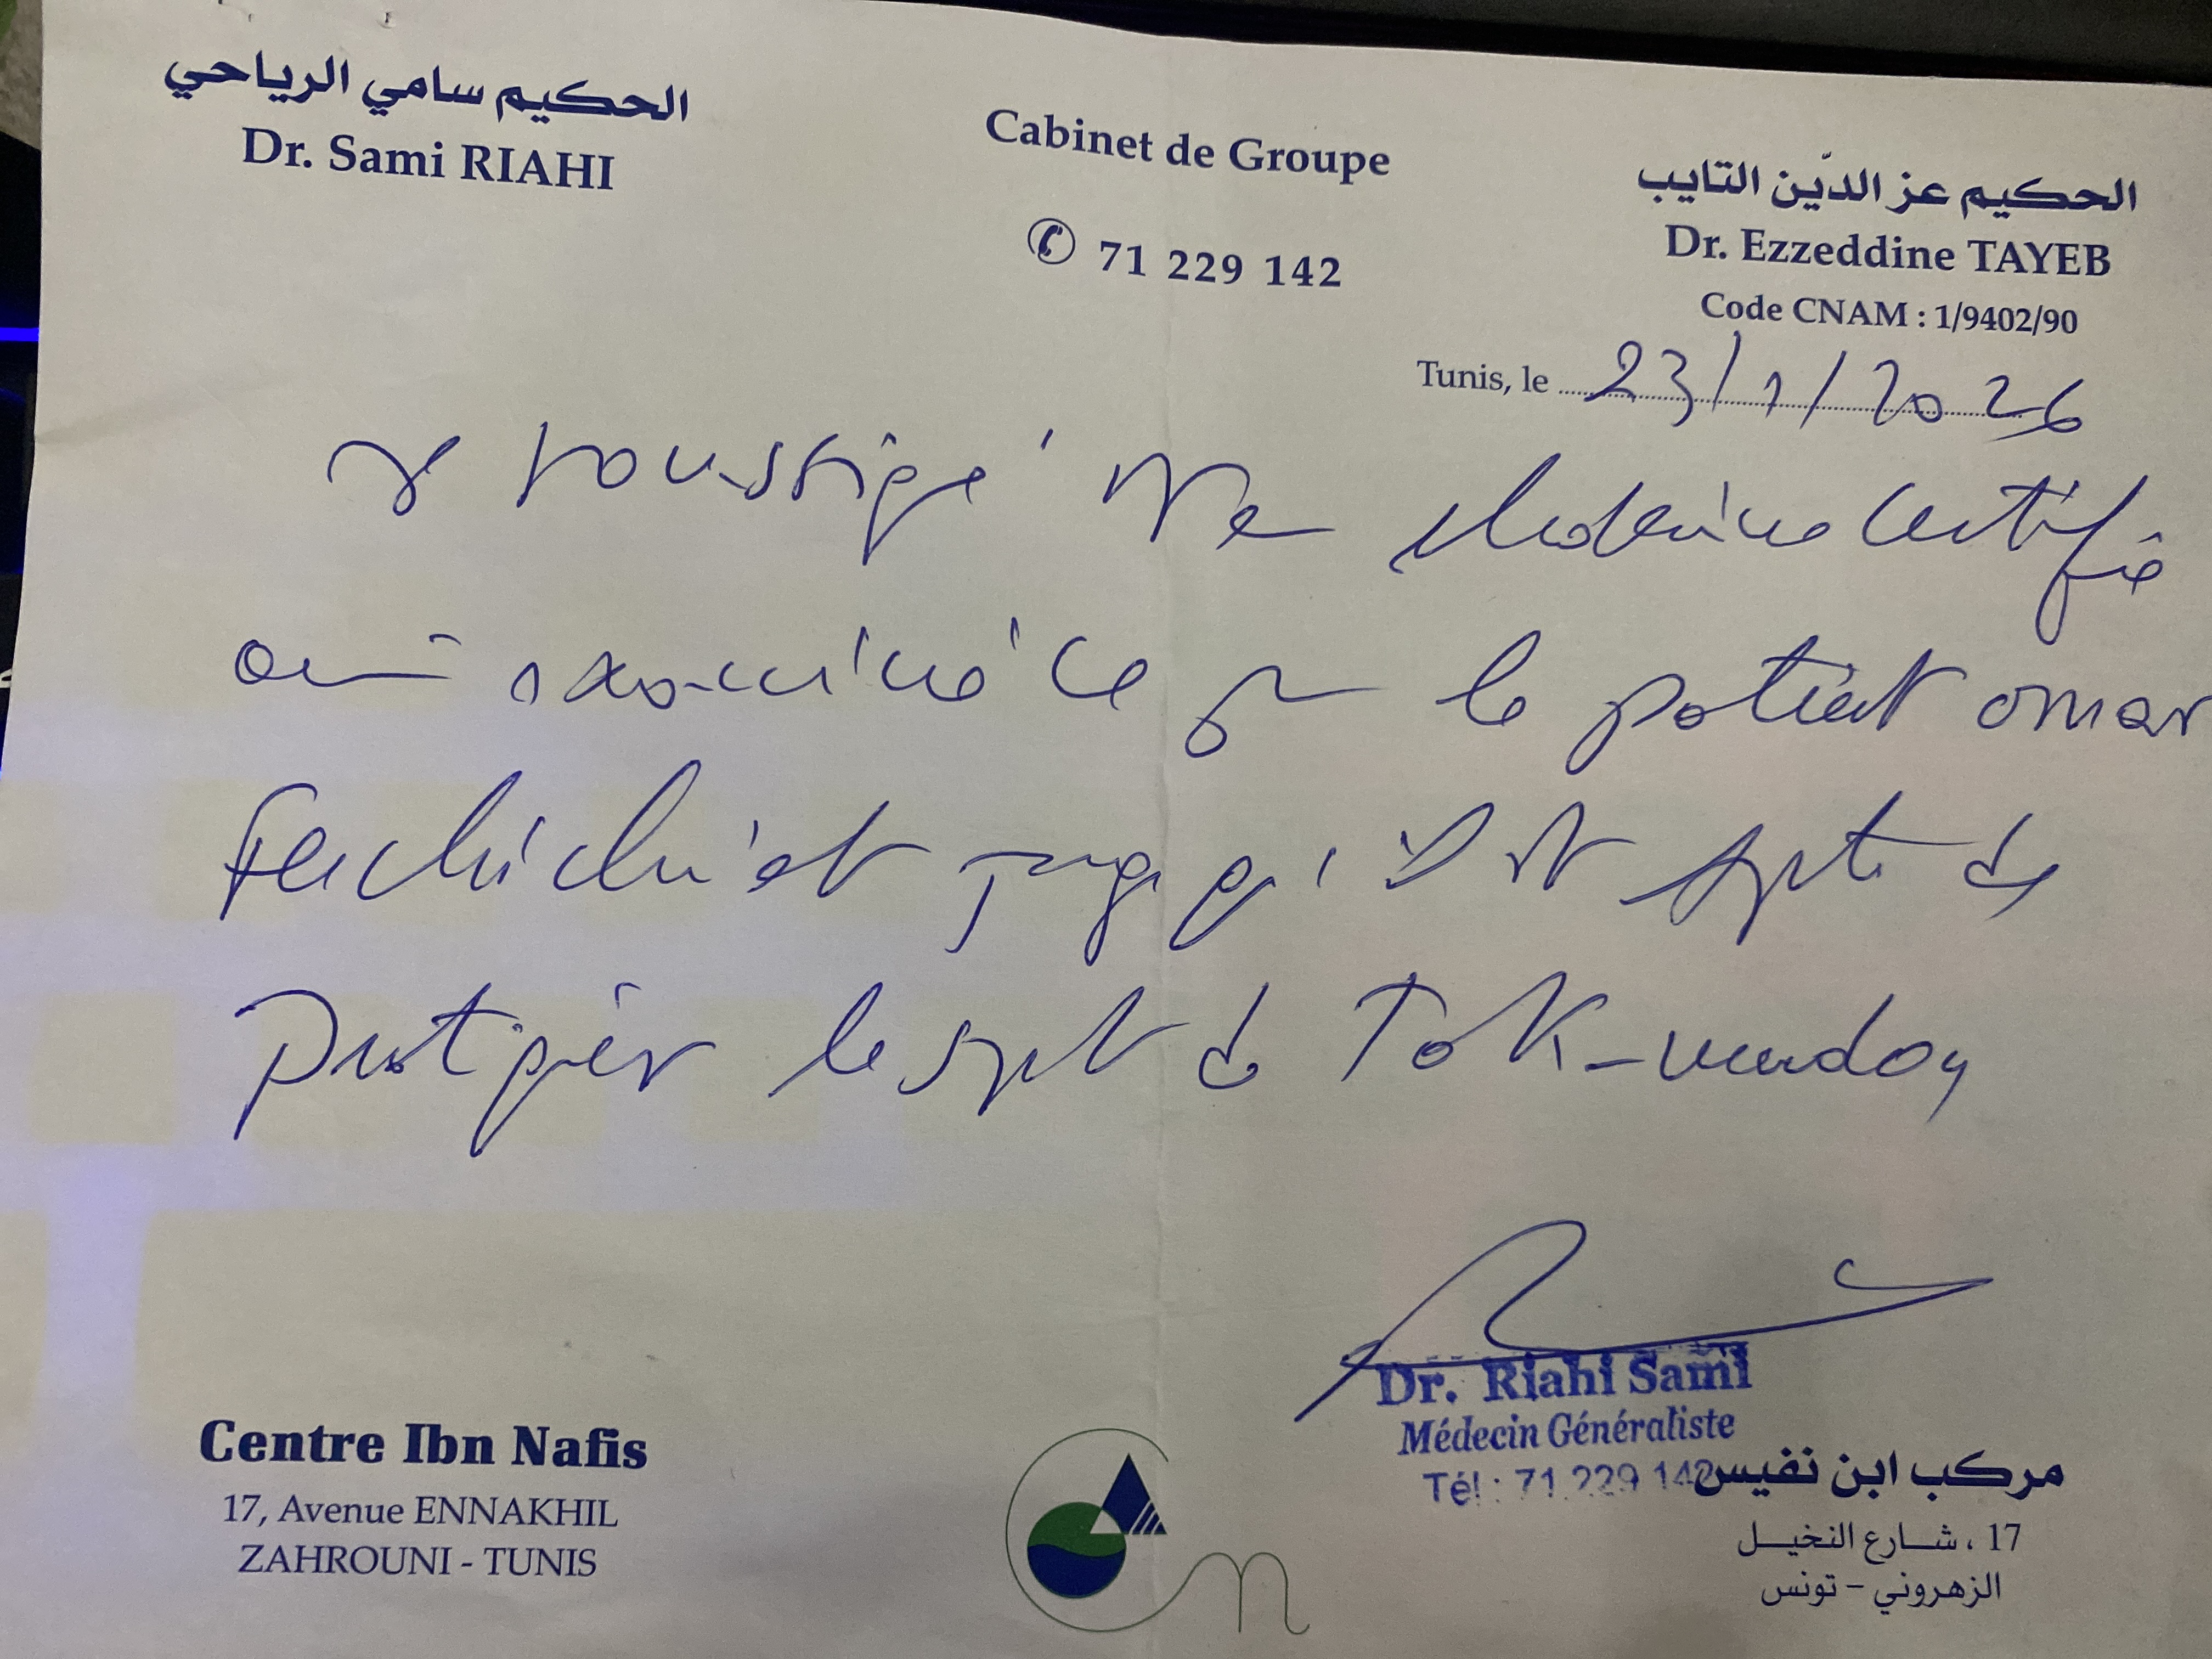 الحكيم سامي الرياحي
Dr. Sami RIAHI
Cabinet de Groupe
71 229 142
الحكيم عز الدّين التايب
Dr. Ezzeddine TAYEB
Code CNAM : 1/9402/90
Tunis, le 23/1/2026
Je soussigné Dr Médecin certifie
avoir examiné ce jour le patient omar
Ferchichi et juge qu'il est apte de
pratiquer le sport de
Dr. Riahi Sami
Médecin Généraliste
Tél : 71 229 142
Centre Ibn Nafis
17, Avenue ENNAKHIL
ZAHROUNI - TUNIS
مركب ابن نفيس
17 ، شارع النخيل
الزهروني - تونس